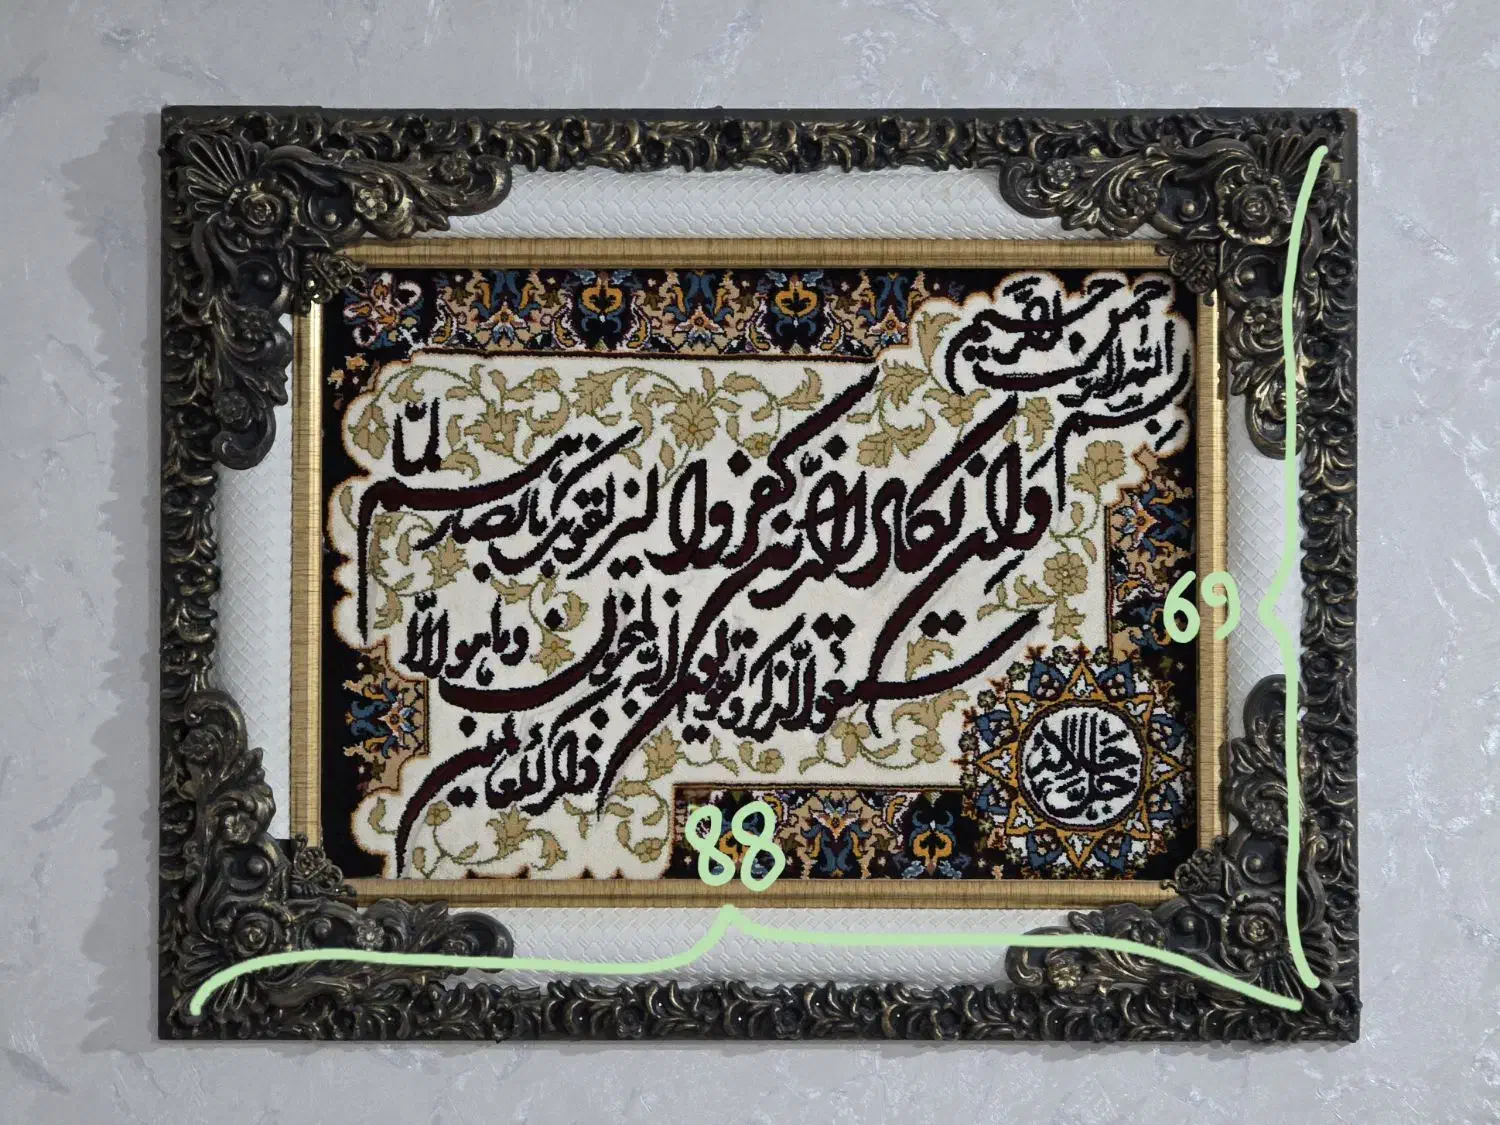 بسم الله الرحمن الرحیم
وان یکاد الذین کفروا لیزلقونک بابصارهم لما
سمعوا الذکر و یقولون انه لمجنون و ما هو الا
ذکر للعالمین
جل جلاله
69
88